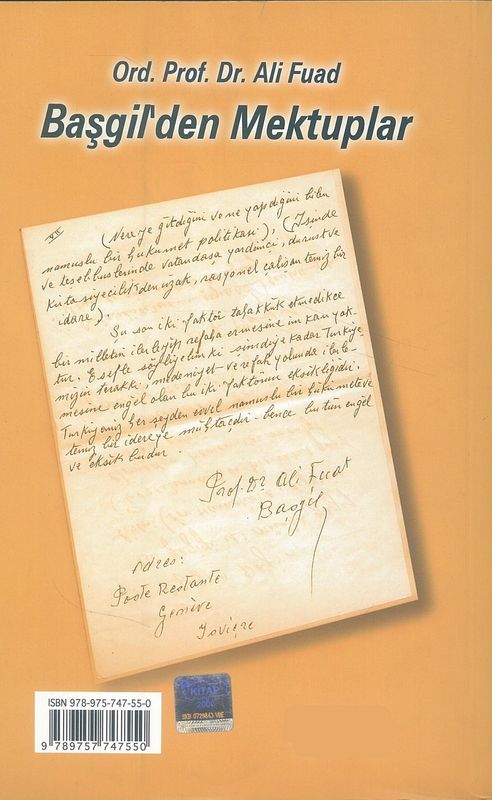 Ord. Prof. Dr. Ali Fuad
Başgil'den Mektuplar
VII
(Nereye gittiğini ve ne yaptığını bilen
namuslu bir hukumet politikası), (İşinde
ve teşebbuslerinde vatandaşa yardımcı, durust ve
kirtasiyecilikden uzak, rasyonel çalışan temiz bir
idare).
Şu son iki faktör tahakkuk etmedikce
bir milletin ilerleyip refaha ermesine imkan yok-
tur. Esefle söyliyelim ki şimdiye kadar Türkiye-
mizin terakki, medeniyet ve refah yolunda ilerle-
mesine engel olan bu iki faktörün eksikliğidir.
Turkiyemiz her şeyden evvel namuslu bir hükümete ve
temiz bir idareye muhtaçdır. bence butün engel
ve eksik budur.
Prof. Dr Ali Fuat
Başgil
Adres:
Poste Restante
Genève
İsviçre
ISBN 978-975-747-55-0
9 789757 747550
KİTAP